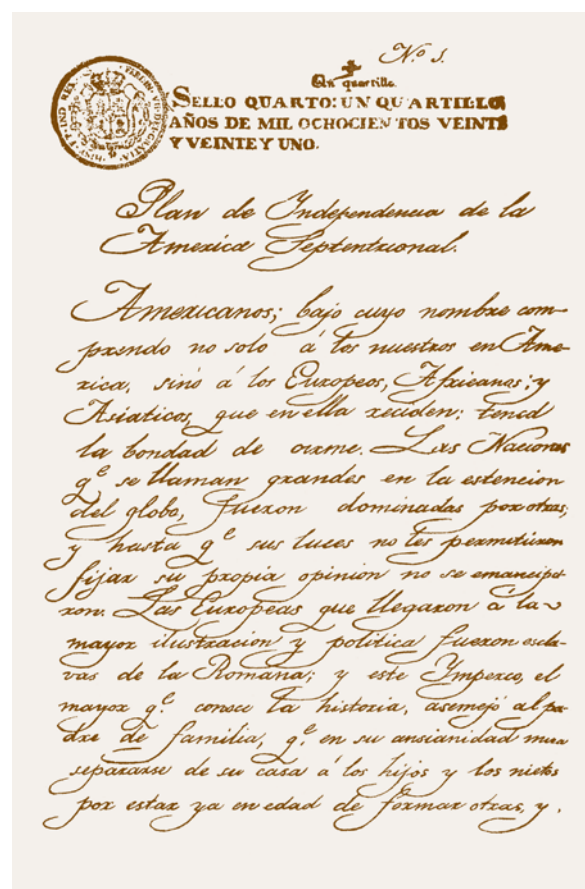 Nº 1.
Un quartillo.
SELLO QUARTO: UN QUARTILLO
AÑOS DE MIL OCHOCIENTOS VEINTE
Y VEINTE Y UNO.
Plan de Independencia de la
America Septentrional.
Americanos; bajo cuyo nombre com-
prendo no solo á los nuestros en Ame-
rica, sinó á los Europeos, Africanos; y
Asiaticos, que en ella reciden: tened
la bondad de oirme. Las Naciones
qᵉ se llaman grandes en la estencion
del globo, fueron dominadas por otras;
y hasta qᵉ sus luces no les permitieron
fijar su propia opinion no se emancipa-
ron. Las Europeas que llegaron á la
mayor ilustracion y politica fueron escla-
vas de la Romana; y este Imperio, el
mayor qᵉ. conoce la historia, asemejó al pa-
dre de familia, qᵉ. en su ansianidad mira
separarse de su casa á los hijos y los nietos
por estar ya en edad de formar otras, y.